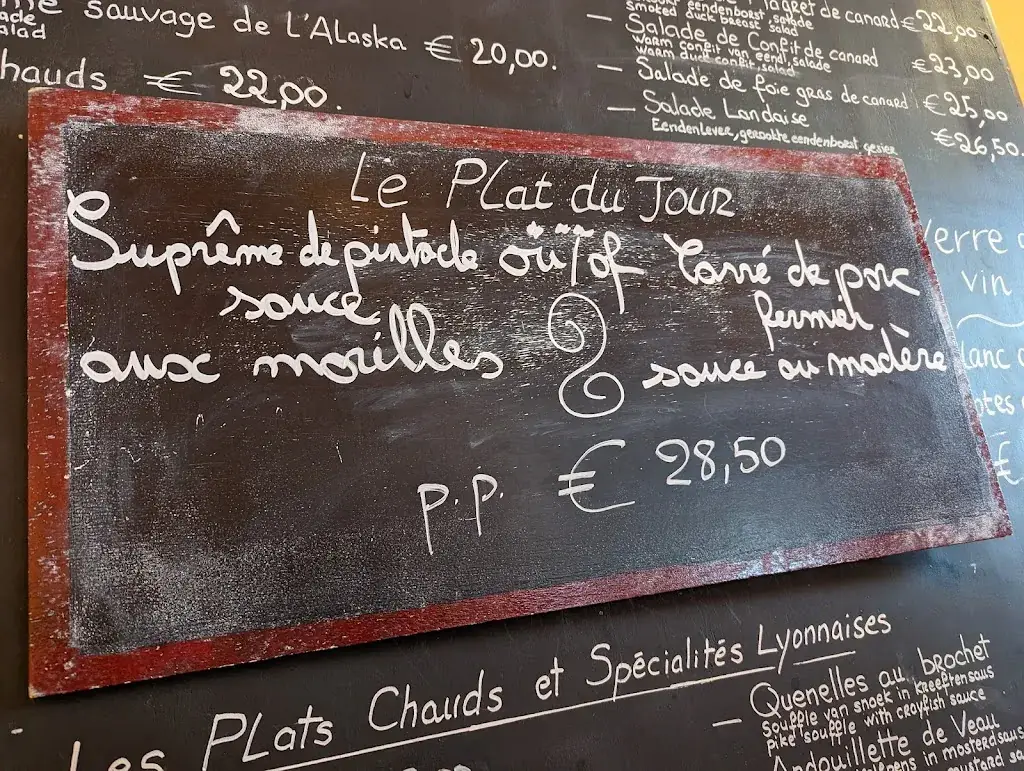 sauvage de L'Alaska € 20,00.
alad
hauds € 22,00.
de canard € 22,00
smoked duck breast salad
— Salade de Confit de canard € 23,00
warm confit van eend, salade
warm duck confit, salad
— Salade de foie gras de canard € 25,00
— Salade Landaise € 26,50.
Eendenlever, gerookte eendenborst gesier
Le Plat du Jour
Suprême de pintade
sauce
aux morilles
où/of
Carré de porc
fermier
sauce au madère
p.p. € 28,50
Verre
vin
lanc
€
Les Plats Chauds et Spécialités Lyonnaises
— Quenelles au brochet
Souffle van snoek in kreeftensaus
pike souffle with crayfish sauce
Andouillette de Veau
in mosterdsaus